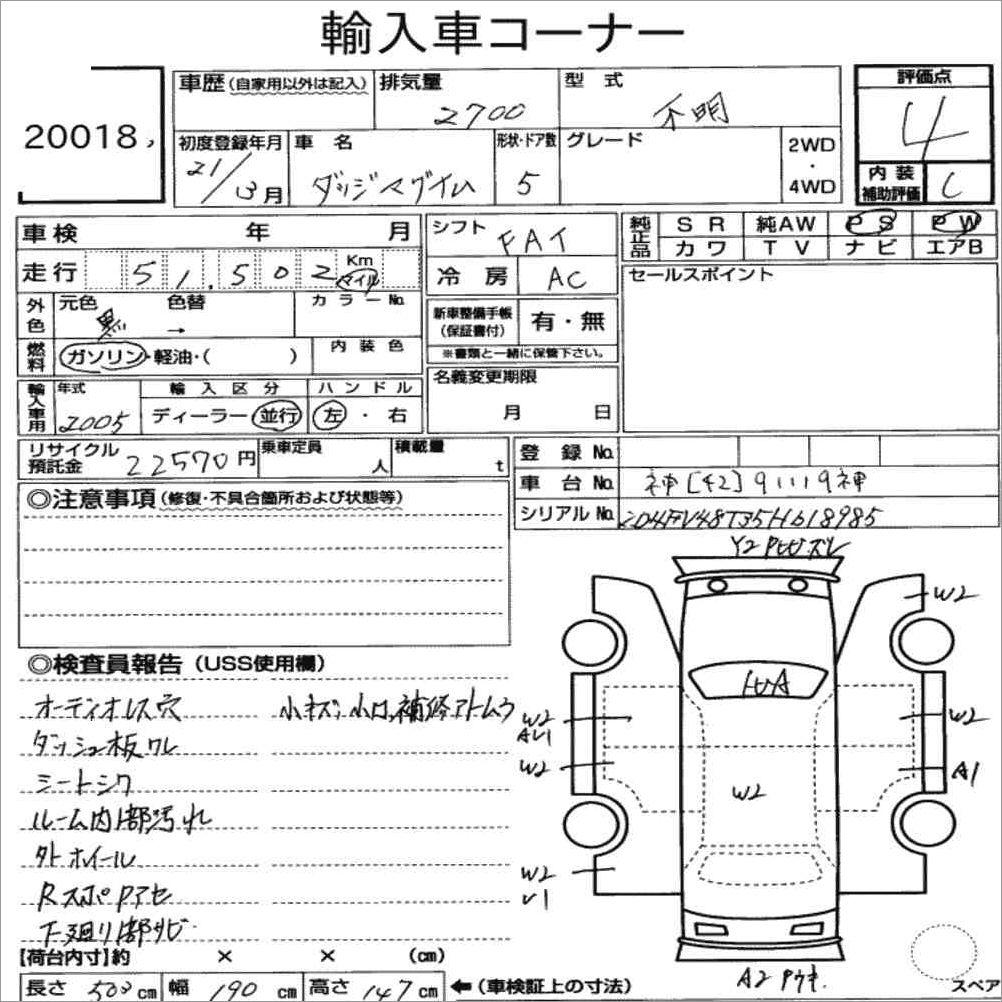 輸入車コーナー
20018
車歴(自家用以外は記入) 排気量 2700 型式 不明 評価点 4
初度登録年月 21/3月 車名 ダッジマグナム 形状・ドア数 5 グレード 2WD・4WD 内装補助評価 C
車検 年 月 シフト FAT 純正品 SR 純AW PS PW
カワ TV ナビ エアB
走行 51,502 Km マイル 冷房 AC セールスポイント
外色 元色 黒 色替 → カラーNo. 新車整備手帳(保証書付) 有・無
※書類と一緒に保管下さい。
燃料 ガソリン・軽油・( ) 内装色 名義変更期限 月 日
輸入車用 年式 2005 輸入区分 ディーラー 並行 ハンドル 左・右
リサイクル預託金 22570円 乗車定員 人 積載量 t 登録No.
車台No. 神[42]91119神
シリアルNo. 2D4FV48T35H618985
◎注意事項(修復・不具合箇所および状態等)
◎検査員報告(USS使用欄)
オーディオレス穴 小キズ、小凹、補修アトムラ
ダッシュ板ワレ
シートシワ
ルーム内部汚れ
外ホイール
RスポPアセ
下廻り部サビ
W2
W2
AU1
W2
W2
A1
W2
W2
U1
A2 Pウキ
【荷台内寸】約 × × (cm)
長さ 500cm 幅 190cm 高さ 147cm ←(車検証上の寸法)
スペア